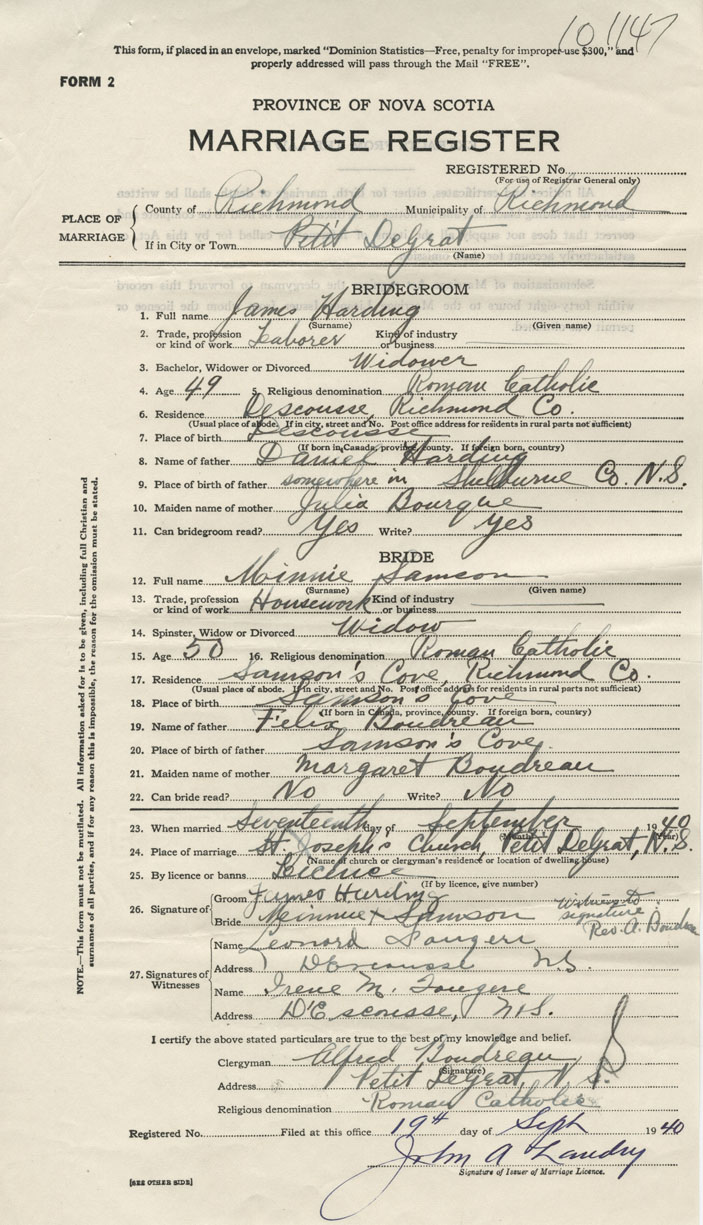 101147
This form, if placed in an envelope, marked "Dominion Statistics—Free, penalty for improper use $300," and
properly addressed will pass through the Mail "FREE".
FORM 2
PROVINCE OF NOVA SCOTIA
MARRIAGE REGISTER
REGISTERED No.
(For use of Registrar General only)
PLACE OF MARRIAGE
County of Richmond Municipality of Richmond
If in City or Town Petit DeGrat
(Name)
BRIDEGROOM
1. Full name James Harding
(Surname) (Given name)
2. Trade, profession or kind of work Laborer Kind of industry or business
3. Bachelor, Widower or Divorced Widower
4. Age 49 5. Religious denomination Roman Catholic
6. Residence Descousse, Richmond Co.
(Usual place of abode. If in city, street and No. Post office address for residents in rural parts not sufficient)
7. Place of birth Descousse
(If born in Canada, province, county. If foreign born, country)
8. Name of father Daniel Harding
9. Place of birth of father somewhere in Shelburne Co. N.S.
10. Maiden name of mother Julia Bourque
11. Can bridegroom read? Yes Write? Yes
BRIDE
12. Full name Minnie Samson
(Surname) (Given name)
13. Trade, profession or kind of work Housework Kind of industry or business
14. Spinster, Widow or Divorced Widow
15. Age 50 16. Religious denomination Roman Catholic
17. Residence Samson's Cove, Richmond Co.
(Usual place of abode. If in city, street and No. Post office address for residents in rural parts not sufficient)
18. Place of birth Samson's Cove
(If born in Canada, province, county. If foreign born, country)
19. Name of father Felix Boudreau
20. Place of birth of father Samson's Cove
21. Maiden name of mother Margaret Boudreau
22. Can bride read? No Write? No
23. When married Seventeenth day of September 1940
(Year)
24. Place of marriage St. Joseph's Church, Petit DeGrat, N.S.
(Name of church or clergyman's residence or location of dwelling house)
25. By licence or banns Licence
(If by licence, give number)
26. Signature of
Groom James Harding
Bride Minnie x Samson
witness to signature Rev. A. Boudreau
27. Signatures of Witnesses
Name Leonard Fougere
Address D'Escousse N.S.
Name Irene M. Fougere
Address D'Escousse, N.S.
I certify the above stated particulars are true to the best of my knowledge and belief.
Clergyman Alfred Boudreau
(Signature)
Address Petit DeGrat, N.S.
Religious denomination Roman Catholic
Registered No. Filed at this office 19th day of Sept 1940
John A Landry
Signature of Issuer of Marriage Licence.
[SEE OTHER SIDE]
NOTE.—This form must not be mutilated. All information asked for is to be given, including full Christian and
surnames of all parties, and if for any reason this is impossible, the reason for the omission must be stated.